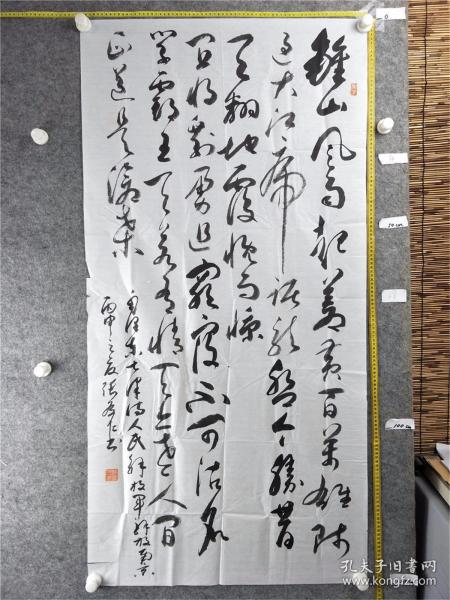 鍾山风雨起苍黄百万雄师
过大江虎踞龙盘今胜昔
天翻地覆慨而慷
宜将剩勇追窮寇不可沽名
学霸王天若有情天亦老人间
正道是沧桑
毛泽东七律诗人民解放军解放南京
丙申之夏张仁书
0
50cm
100cm
孔夫子旧书网